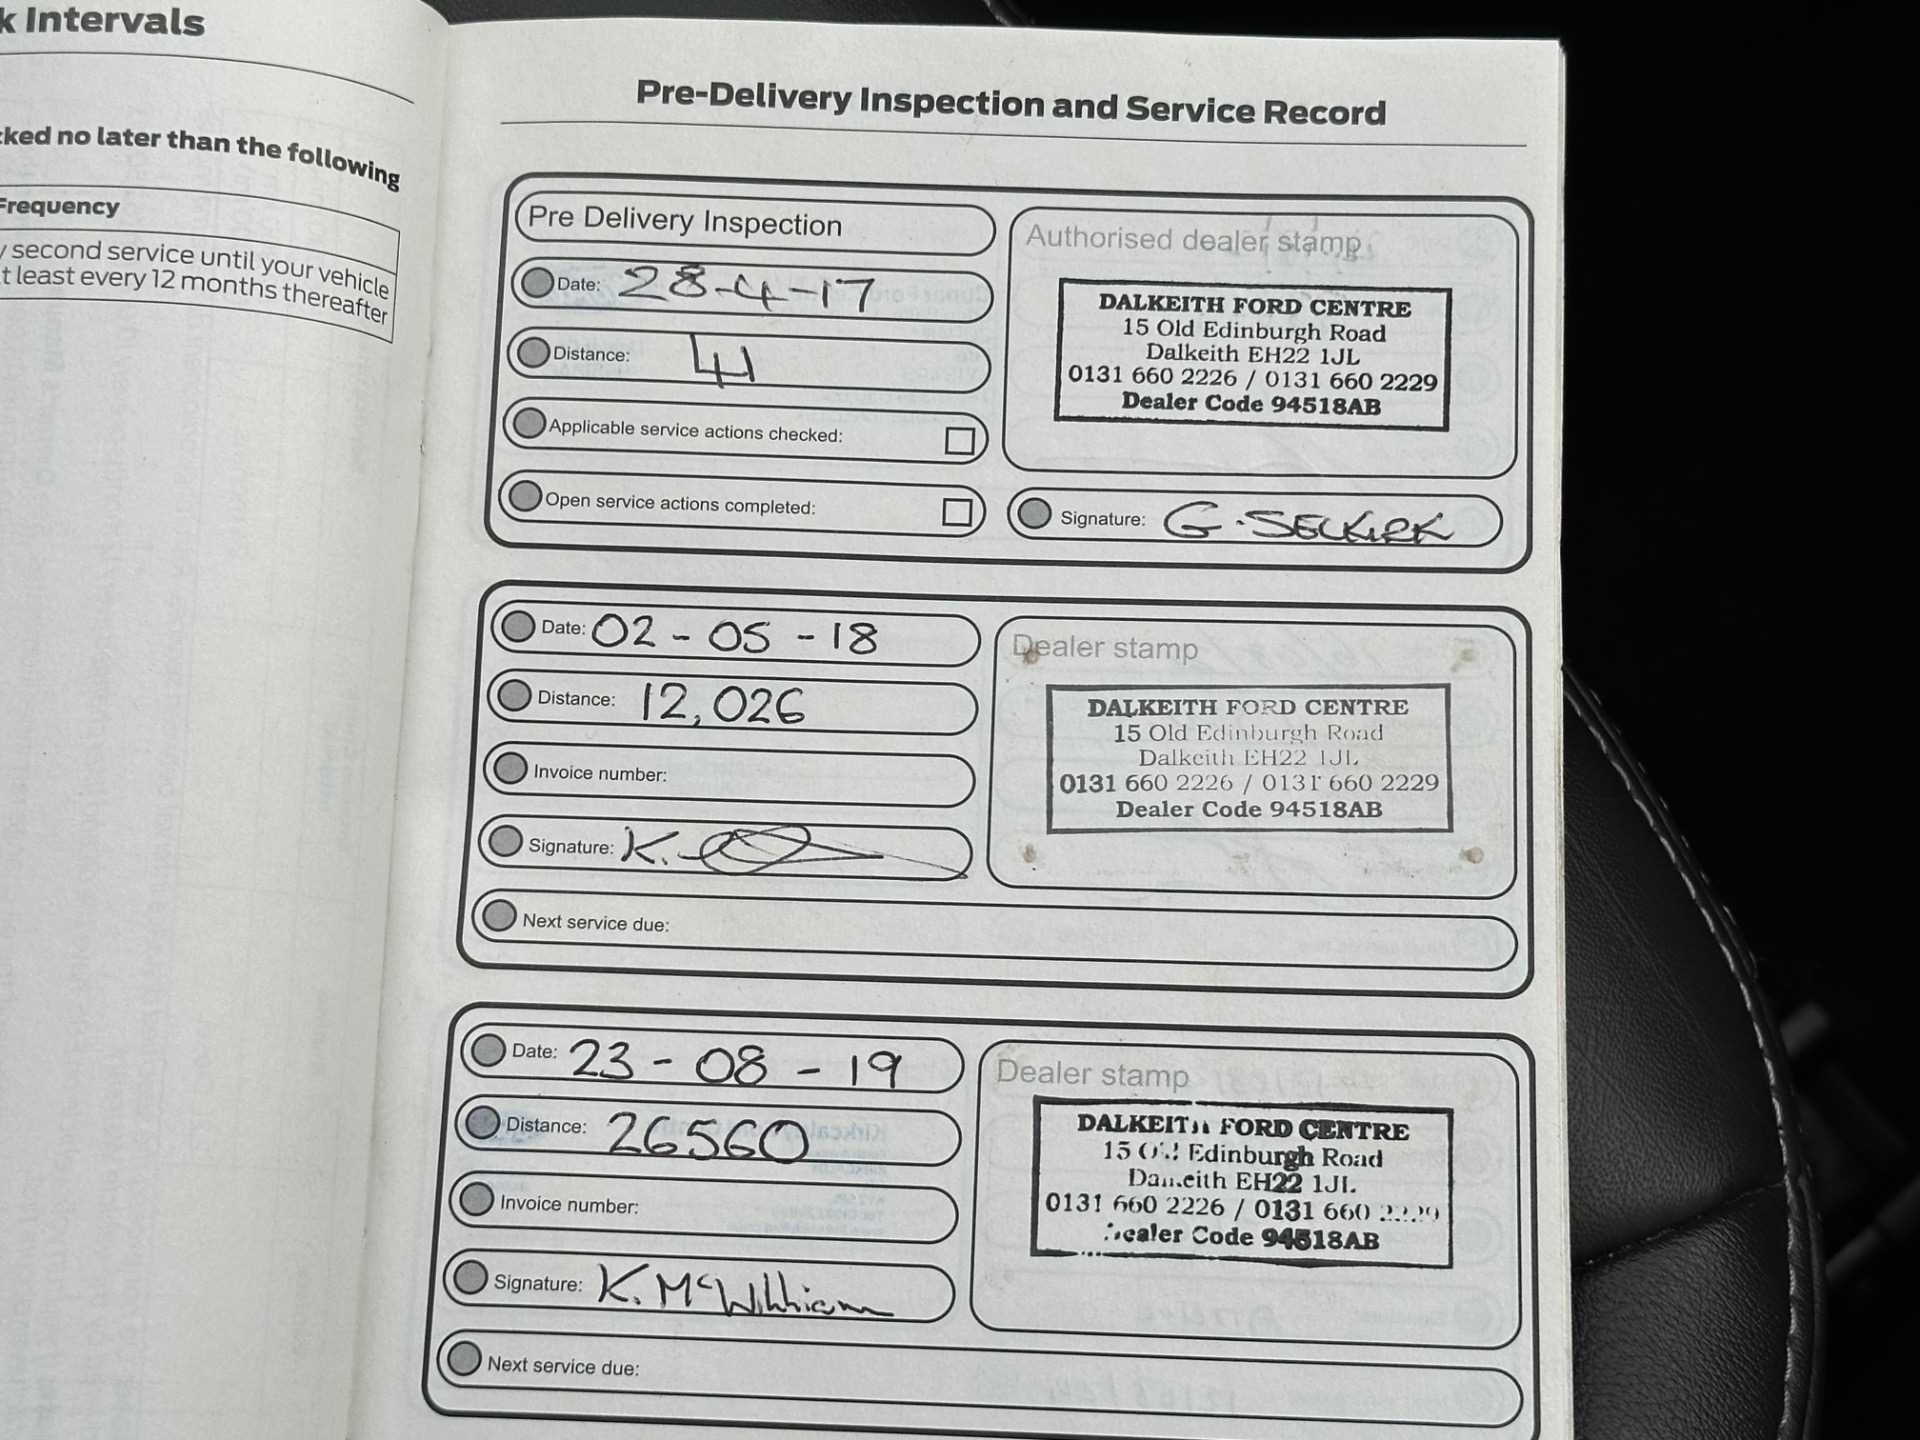 k Intervals
cked no later than the following
Frequency
y second service until your vehicle
t least every 12 months thereafter
Pre-Delivery Inspection and Service Record
Pre Delivery Inspection
Authorised dealer stamp
Date: 28-4-17
DALKEITH FORD CENTRE
15 Old Edinburgh Road
Dalkeith EH22 1JL
0131 660 2226 / 0131 660 2229
Dealer Code 94518AB
Distance: 41
Applicable service actions checked:
Open service actions completed:
Signature: G. SELKIRK
Date: 02-05-18
Dealer stamp
Distance: 12,026
DALKEITH FORD CENTRE
15 Old Edinburgh Road
Dalkeith EH22 1JL
0131 660 2226 / 0131 660 2229
Dealer Code 94518AB
Invoice number:
Signature: K.
Next service due:
Date: 23-08-19
Dealer stamp
Distance: 26560
DALKEITH FORD CENTRE
15 Old Edinburgh Road
Dalkeith EH22 1JL
0131 660 2226 / 0131 660 2229
Dealer Code 94518AB
Invoice number:
Signature: K. McWilliam
Next service due: